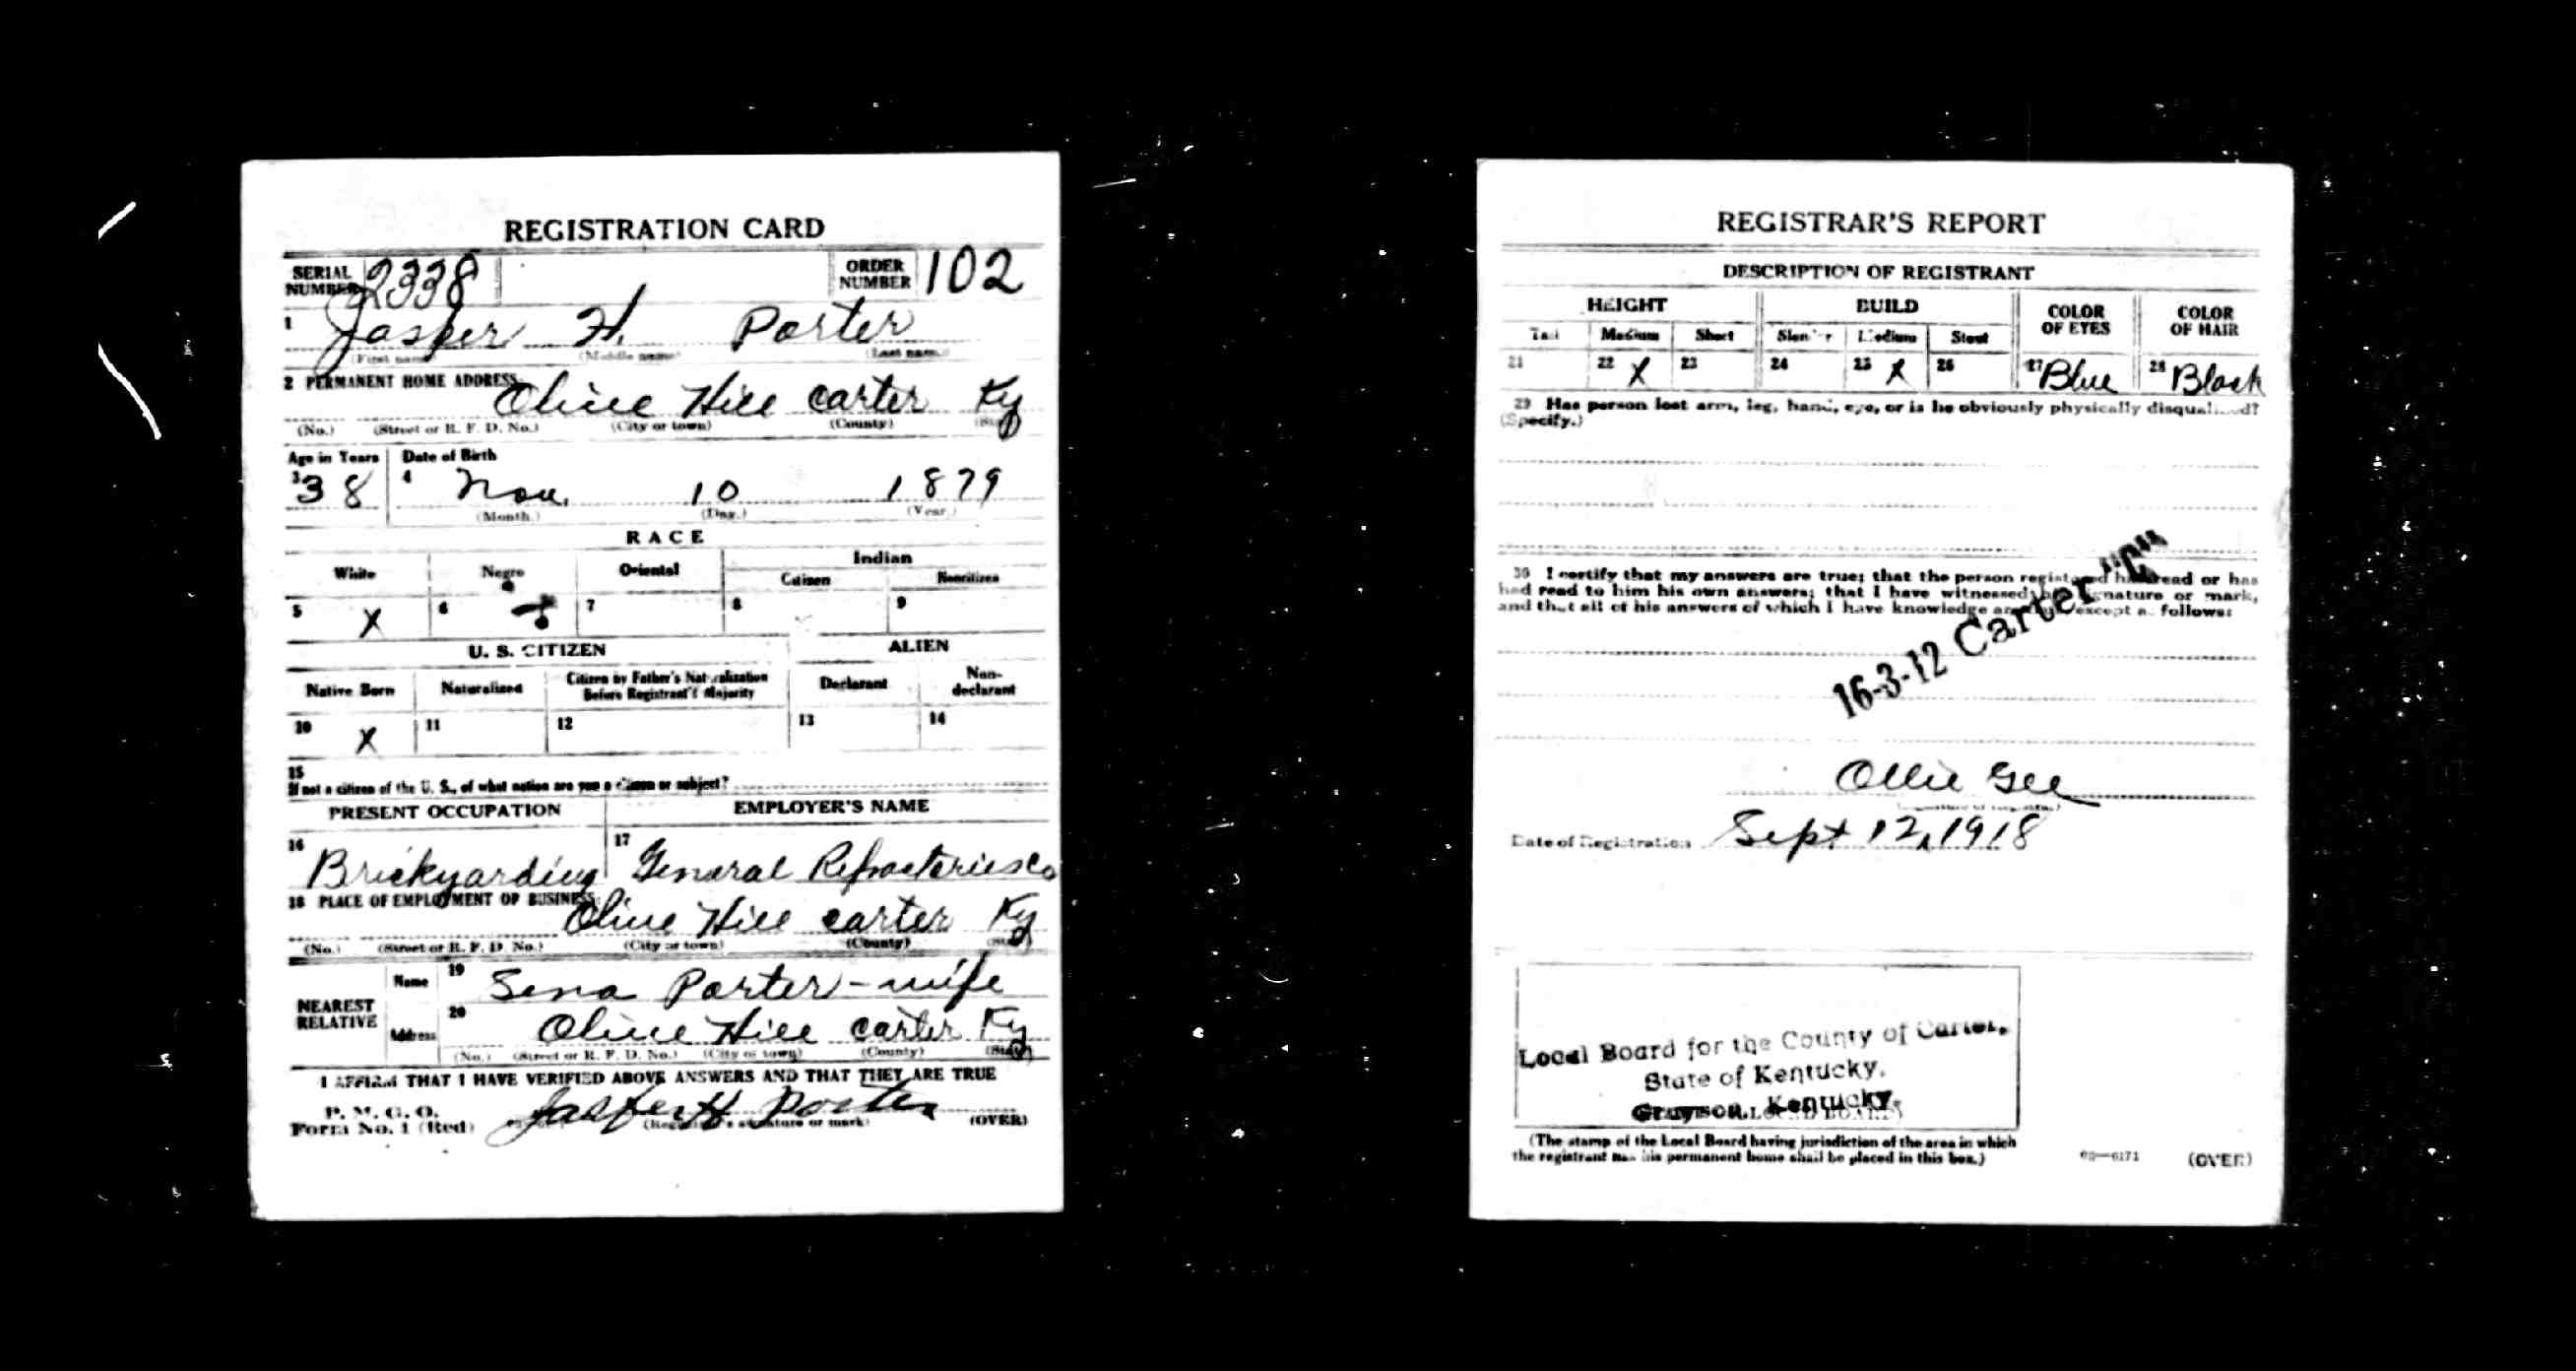 REGISTRATION CARD
SERIAL NUMBER 2338 ORDER NUMBER 102
1 Jasper H. Porter
(First name) (Middle name) (Last name)
2 PERMANENT HOME ADDRESS
Olive Hill Carter Ky
(No.) (Street or R. F. D. No.) (City or town) (County) (State)
Age in Years Date of Birth
3 38 4 Nov. 10 1879
(Month.) (Day.) (Year.)
RACE
White Negro Oriental Indian
Citizen Noncitizen
5 X 6 7 8 9
U. S. CITIZEN ALIEN
Native Born Naturalized Citizen by Father's Naturalization Before Registrant's Majority Declarant Non-declarant
10 X 11 12 13 14
15
If not a citizen of the U. S., of what nation are you a citizen or subject?
PRESENT OCCUPATION EMPLOYER'S NAME
16 Brickyarding 17 General Refractories Co
18 PLACE OF EMPLOYMENT OR BUSINESS:
Olive Hill Carter Ky
(No.) (Street or R. F. D. No.) (City or town) (County) (State)
NEAREST RELATIVE
Name 19 Sena Porter - wife
Address 20 Olive Hill Carter Ky
(No.) (Street or R. F. D. No.) (City or town) (County) (State)
I AFFIRM THAT I HAVE VERIFIED ABOVE ANSWERS AND THAT THEY ARE TRUE
P. M. G. O.
Form No. 1 (Red) Jasper H Porter (OVER)
(Registrant's signature or mark)
REGISTRAR'S REPORT
DESCRIPTION OF REGISTRANT
HEIGHT BUILD COLOR OF EYES COLOR OF HAIR
Tall Medium Short Slender Medium Stout
21 22 X 23 24 25 X 26 27 Blue 28 Black
29 Has person lost arm, leg, hand, eye, or is he obviously physically disqualified?
(Specify.)
30 I certify that my answers are true; that the person registered has read or has
had read to him his own answers; that I have witnessed his signature or mark,
and that all of his answers of which I have knowledge are true, except as follows:
16-3-12 Carter "C"
Ollie Gee
Date of Registration Sept 12, 1918
Local Board for the County of Carter,
State of Kentucky,
Grayson, Kentucky.
(The stamp of the Local Board having jurisdiction of the area in which
the registrant has his permanent home shall be placed in this box.)
(OVER)